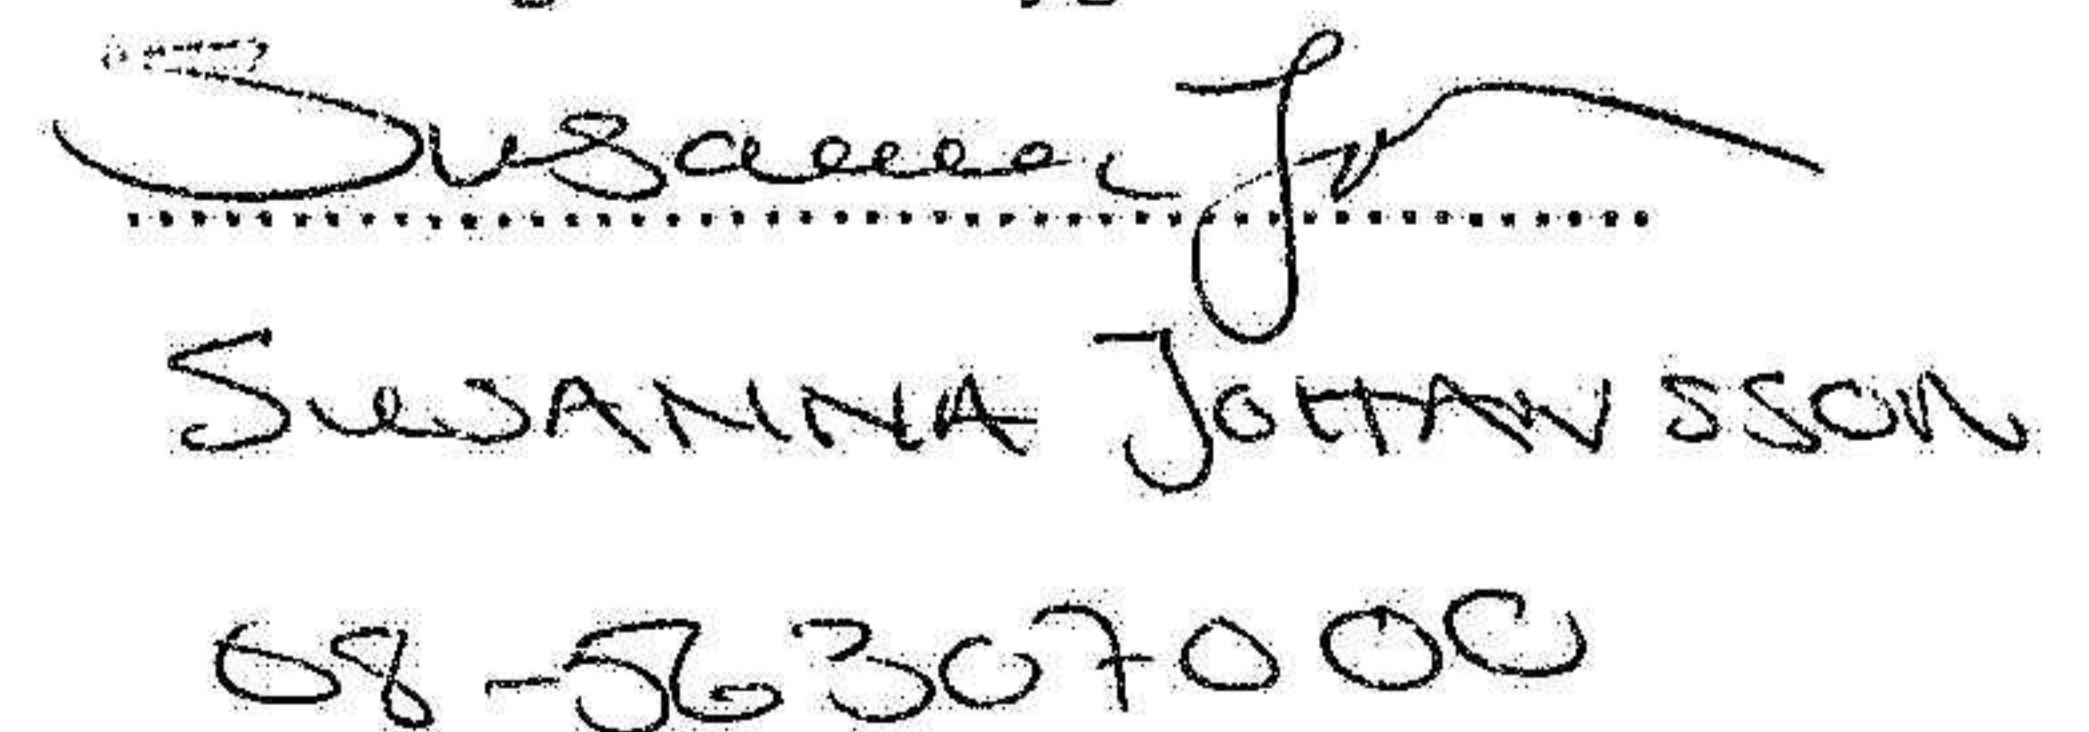 Susanna Jo
SUSANNA JOHANSSON
08-56307000